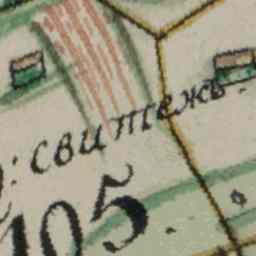 : свитежъ.
105.